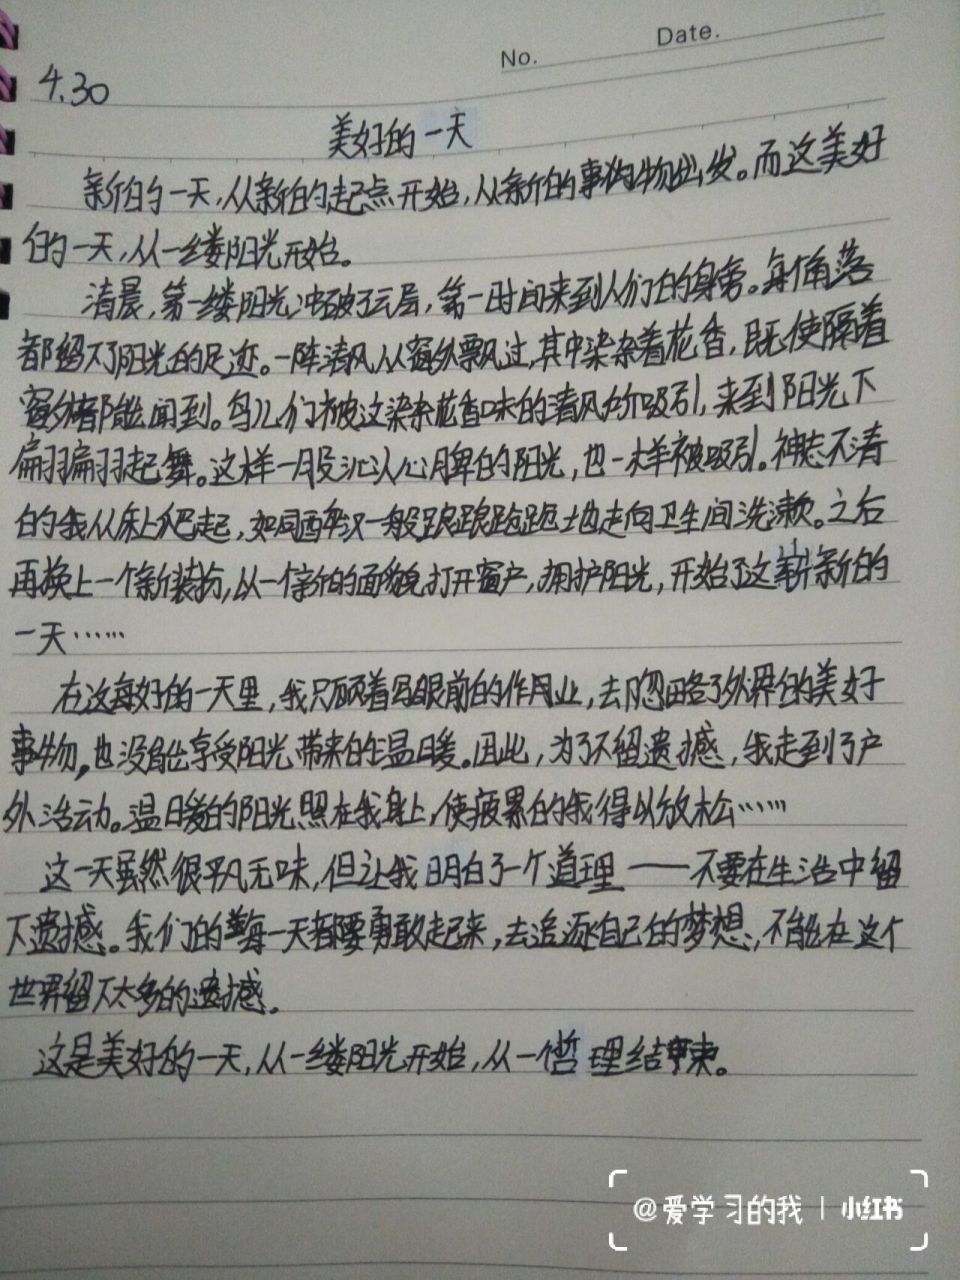 No. Date.
4.30
美好的一天
新的一天,从新的起点开始,从新的事物出发。而这美好
的一天,从一缕阳光开始。
清晨,第一缕阳光冲破了云层,第一时间来到人们的身旁。每个角落
都留下了阳光的足迹。一阵清风从窗外飘过,其中柒杂着花香,既使隔着
窗外都能闻到。鸟儿们被这柒杂花香味的清风所吸引,来到阳光下
翩翩起舞。这样一股沁人心脾的阳光,也一样被吸引。神志不清
的我从床上爬起,如同醉汉一般踉踉跄跄地走向卫生间洗漱。之后
再换上一个新装扮,以一个新的面貌打开窗户,拥护阳光,开始了这崭新的
一天……
在这每好的一天里,我只顾着写眼前的作业,去忽略了外界的美好
事物,也没能去享受阳光带来的温暖。因此,为了不留遗憾,我走到了户
外活动。温暖的阳光照在我身上,使疲累的我得以放松……
这一天虽然很平凡无味,但让我明白了一个道理——不要在生活中留
下遗憾。我们的每一天都要勇敢起来,去追逐自己的梦想,不能在这个
世界留下太多的遗憾。
这是美好的一天,从一缕阳光开始,从一个哲理结束。
@爱学习的我 | 小红书